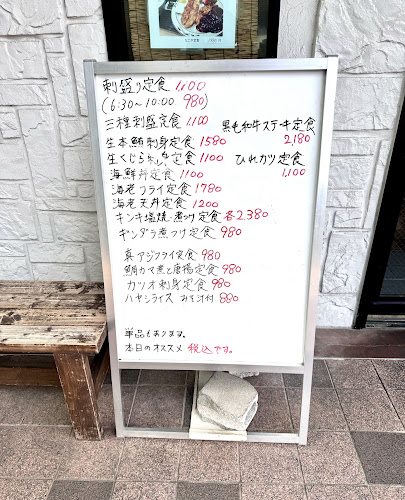 刺盛り定食 1,100
(6:30〜10:00 980)
三種刺盛定食 1,100
生本鮪刺身定食 1580
生くじら刺身定食 1100
海鮮丼定食 1100
海老フライ定食 1780
海老天丼定食 1200
キンキ塩焼・煮つけ定食 各2,380
ギンダラ煮つけ定食 980
黒毛和牛ステーキ定食
2,180
ひれカツ定食
1,100
真アジフライ定食 980
鮪カマ煮と唐揚定食 980
カツオ刺身定食 980
ハヤシライス みそ汁付 880
単品もあります。
本日のオススメ 税込です。